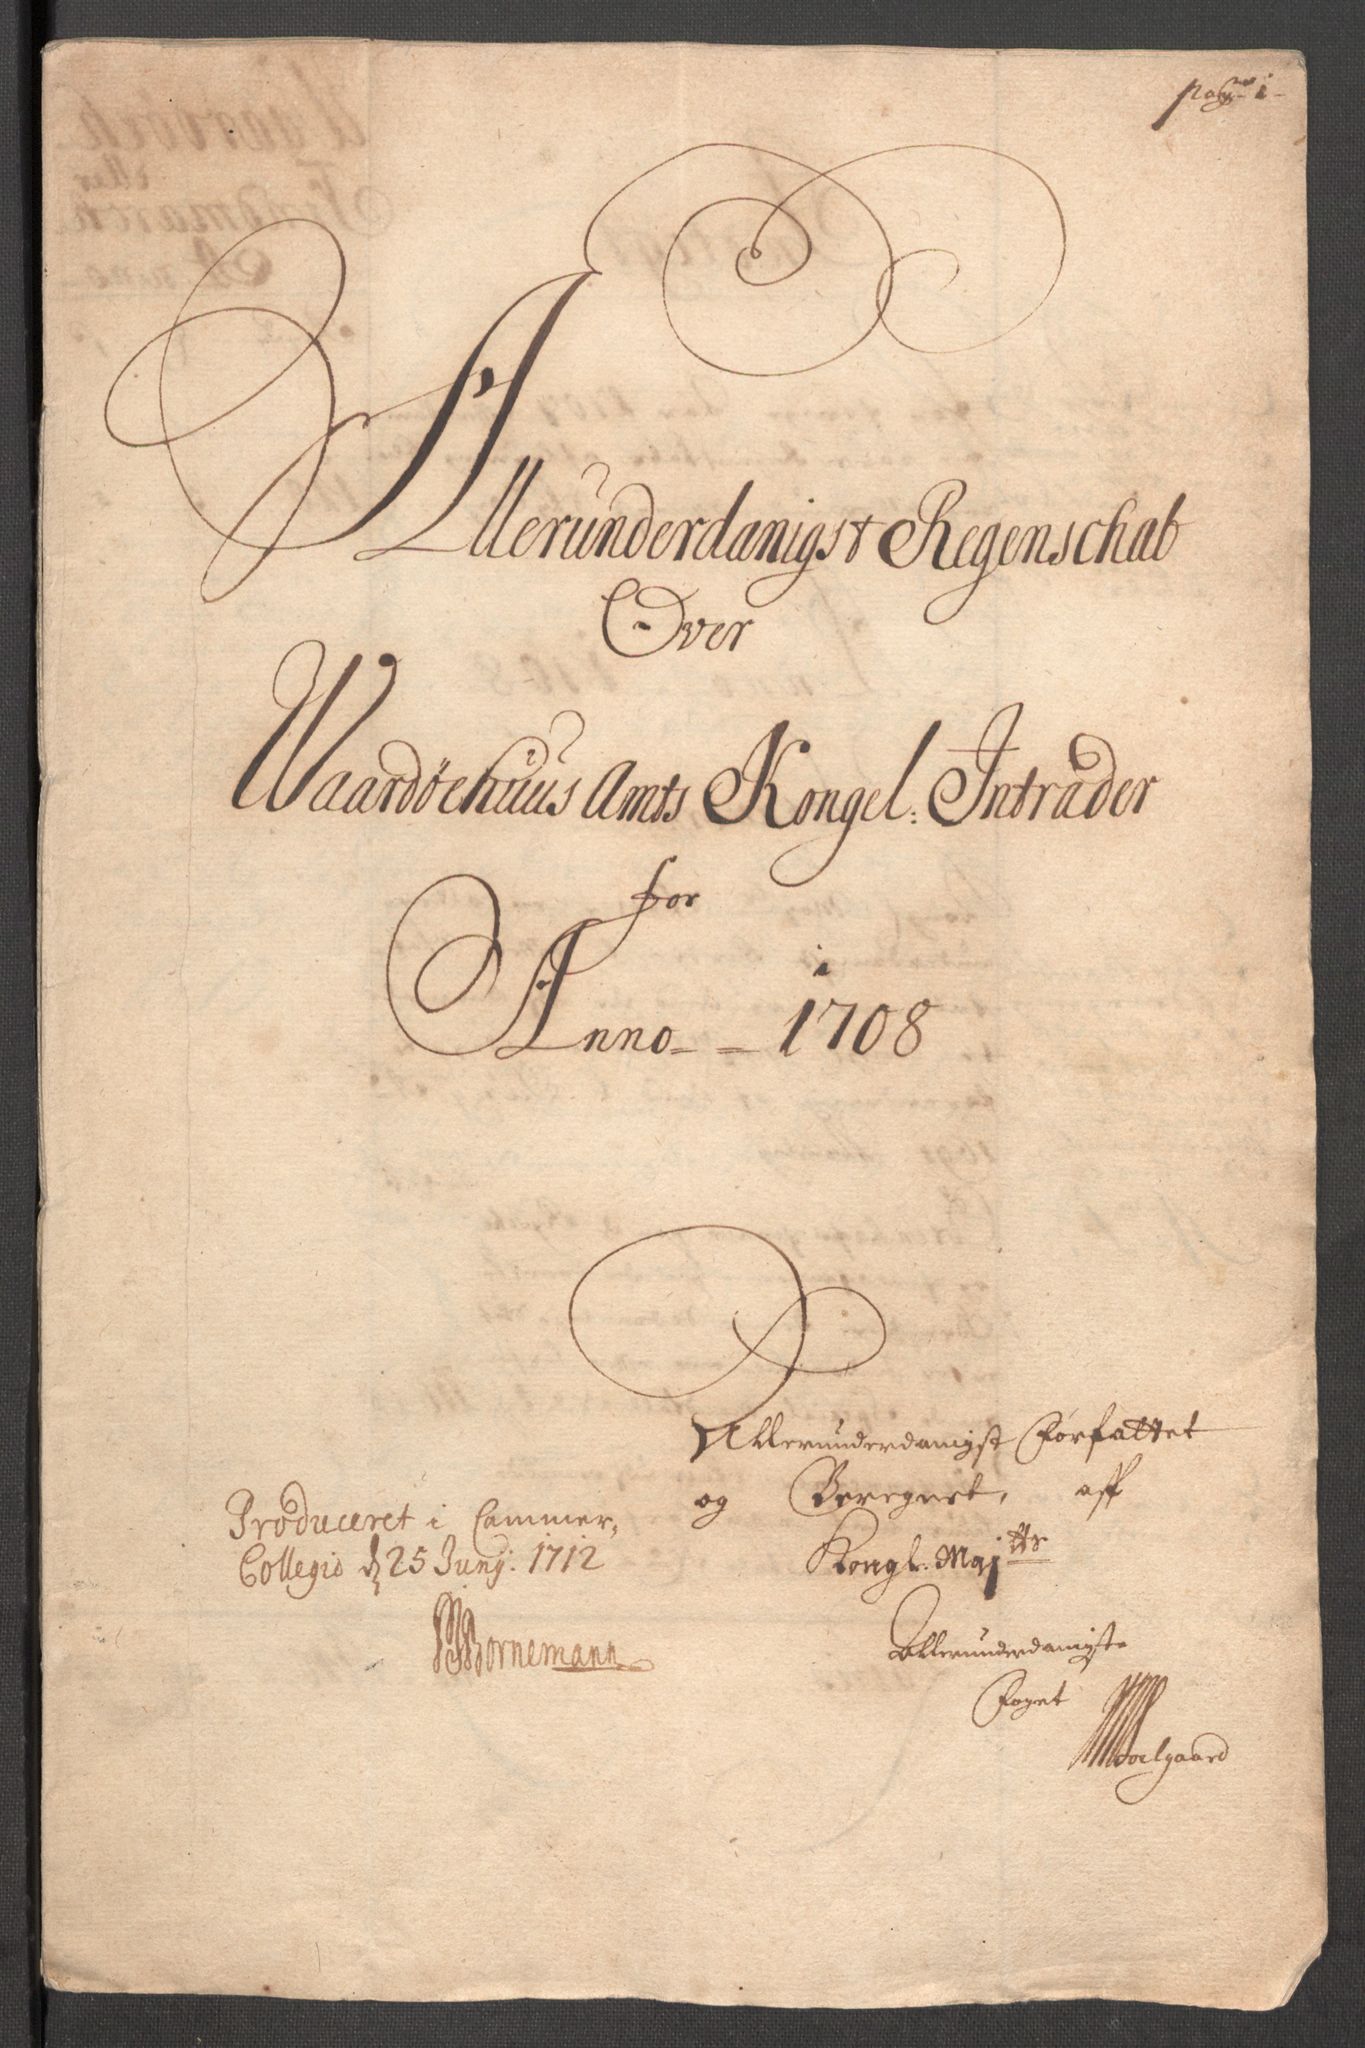 pag: 1
Allerunderdanigst Regenschab
Over
Waardøehuus Amts Kongel: Intrader
for
Anno 1708
Allerunderdanigst Forfattet
og Beregnet, aff
Kongl: Maj:tts
Allerunderdanigste
Foget
Produceret i Cammer,
Collegio d 25 Junij: 1712
Bornemann